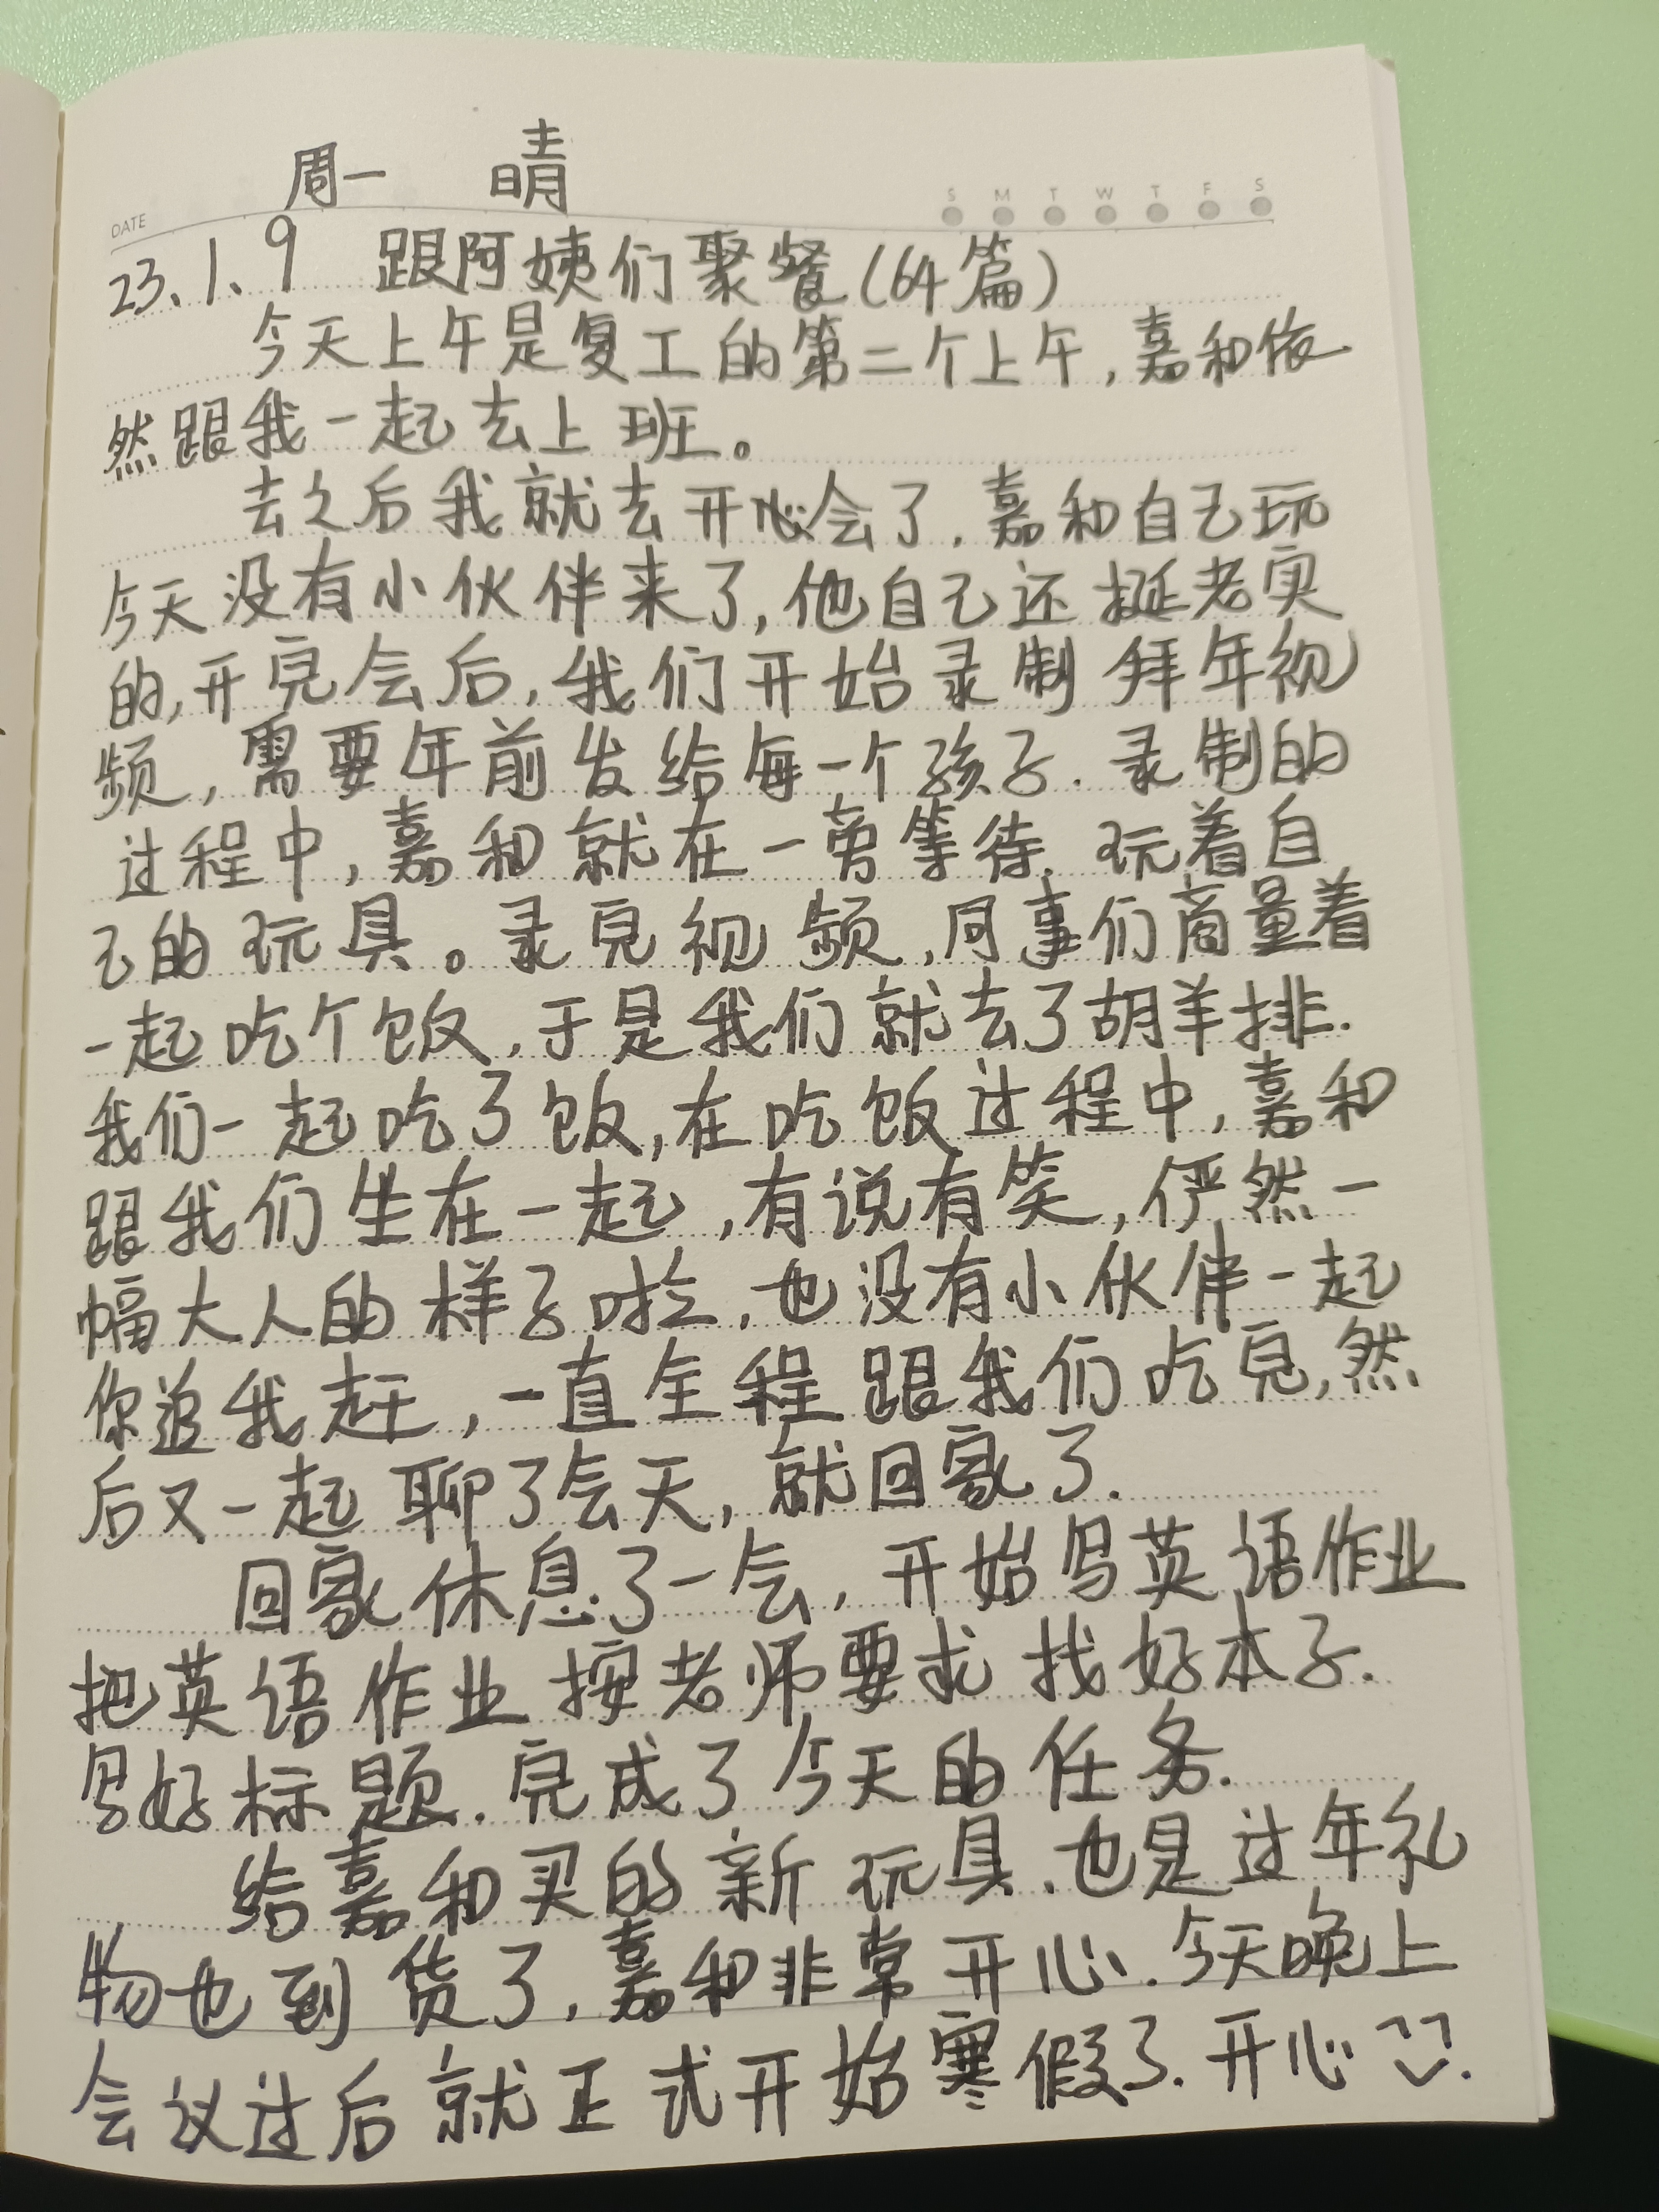 周一 晴
DATE
S M T W T F S
23、1、9 跟阿姨们聚餐(64篇)
今天上午是复工的第二个上午,嘉和依
然跟我一起去上班。
去之后我就去开心会了.嘉和自己玩
今天没有小伙伴来了,他自己还挺老实
的,开完会后,我们开始录制拜年视
频,需要年前发给每一个孩子.录制的
过程中,嘉和就在一旁等待.玩着自
己的玩具。录完视频,同事们商量着
一起吃个饭,于是我们就去了胡羊排.
我们一起吃了饭,在吃饭过程中,嘉和
跟我们坐在一起,有说有笑,俨然一
幅大人的样子啦,也没有小伙伴一起
你追我赶,一直全程跟我们吃完,然
后又一起聊了会天,就回家了.
回家休息了一会,开始写英语作业
把英语作业按老师要求找好本子.
写好标题.完成了今天的任务.
给嘉和买的新玩具.也是过年礼
物也到货了,嘉和非常开心.今天晚上
会议过后就正式开始寒假了.开心